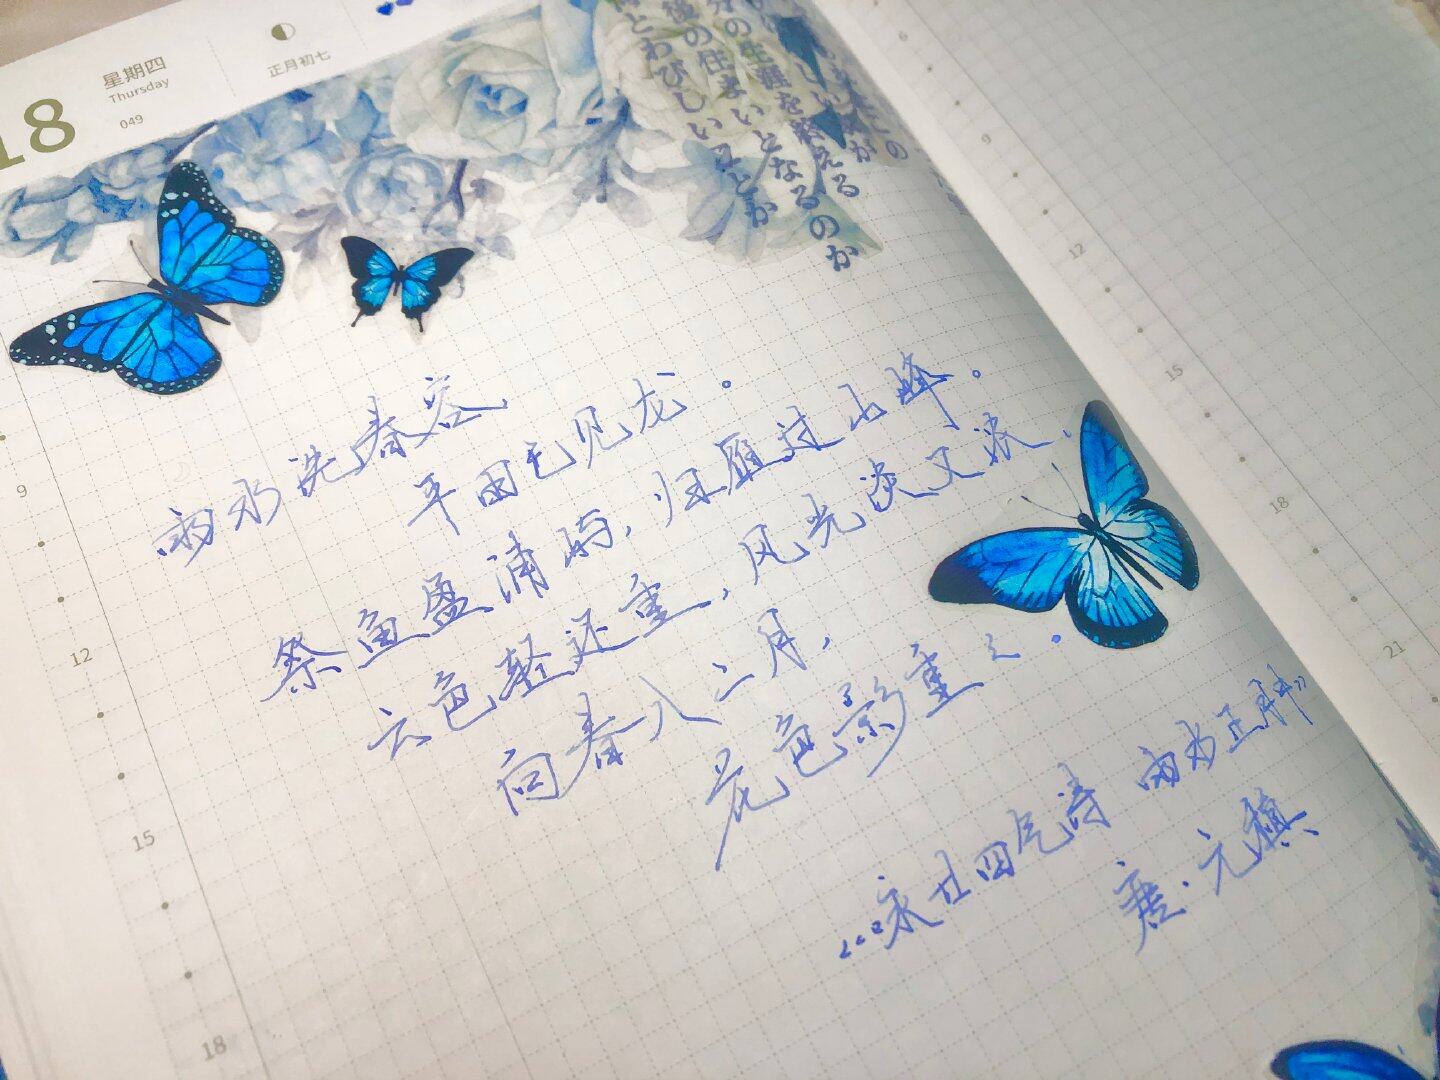 18
星期四
Thursday
049
正月初七
分の生涯を終える
後の住まいとなるのか
とわびしいことか
雨水洗春容，
平田已见龙。
祭鱼盈浦屿，归雁过山峰。
云色轻还重，风光淡又浓，
向春入二月，
花色影重々。
《咏廿四气诗 雨水正月中》
唐·元稹
9
12
15
18
6
9
12
15
18
21